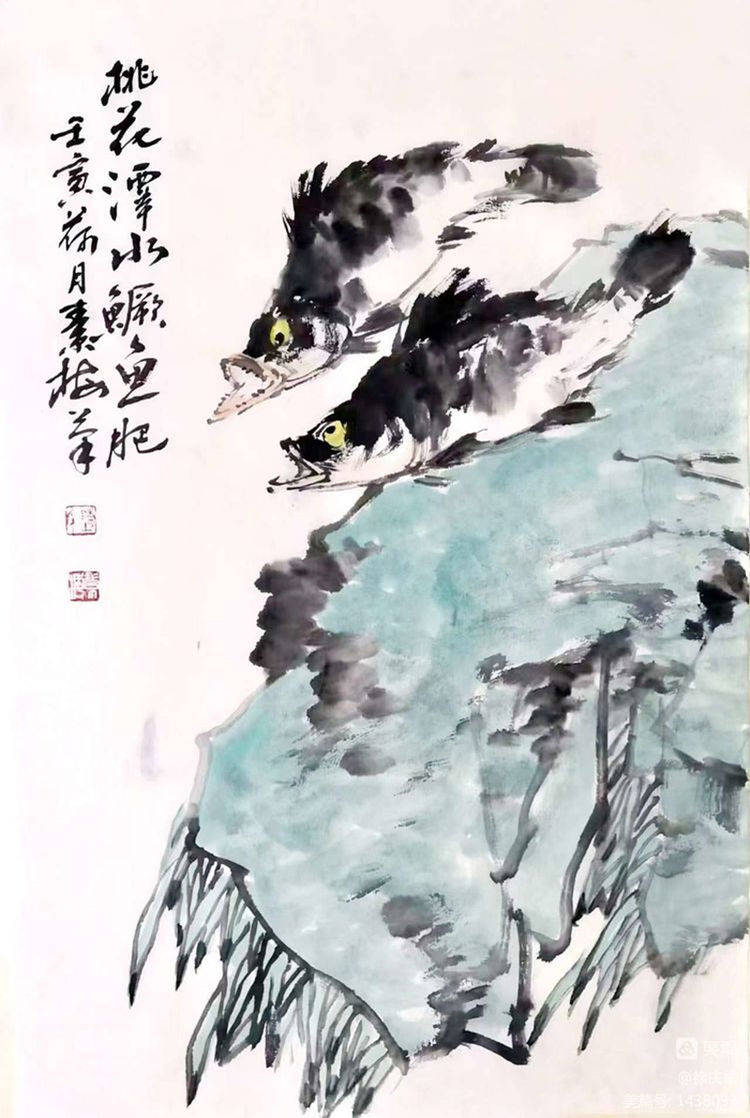 桃花潭水鳜鱼肥
壬寅荷月素梅笔
美篇
美篇号 1438093